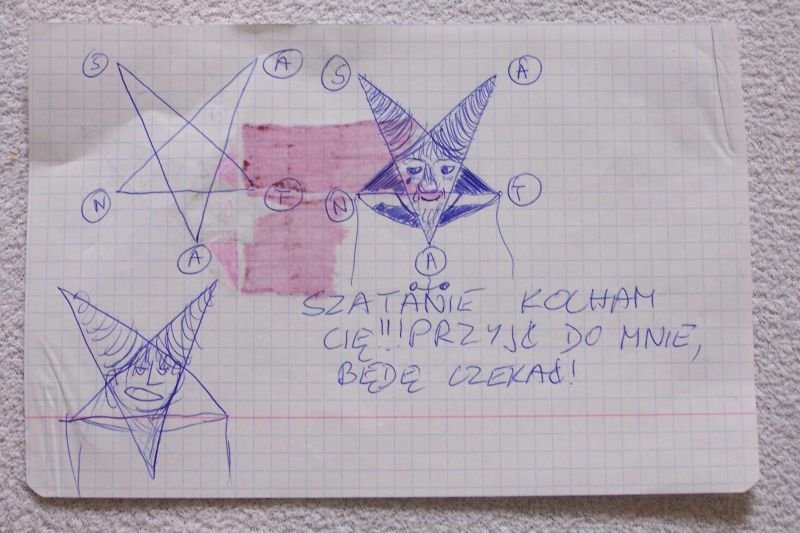 S A
N T
A
S A
N T
A
SZATANIE KOCHAM
CIĘ!!! PRZYJŚĆ DO MNIE,
BĘDĘ CZEKAĆ!